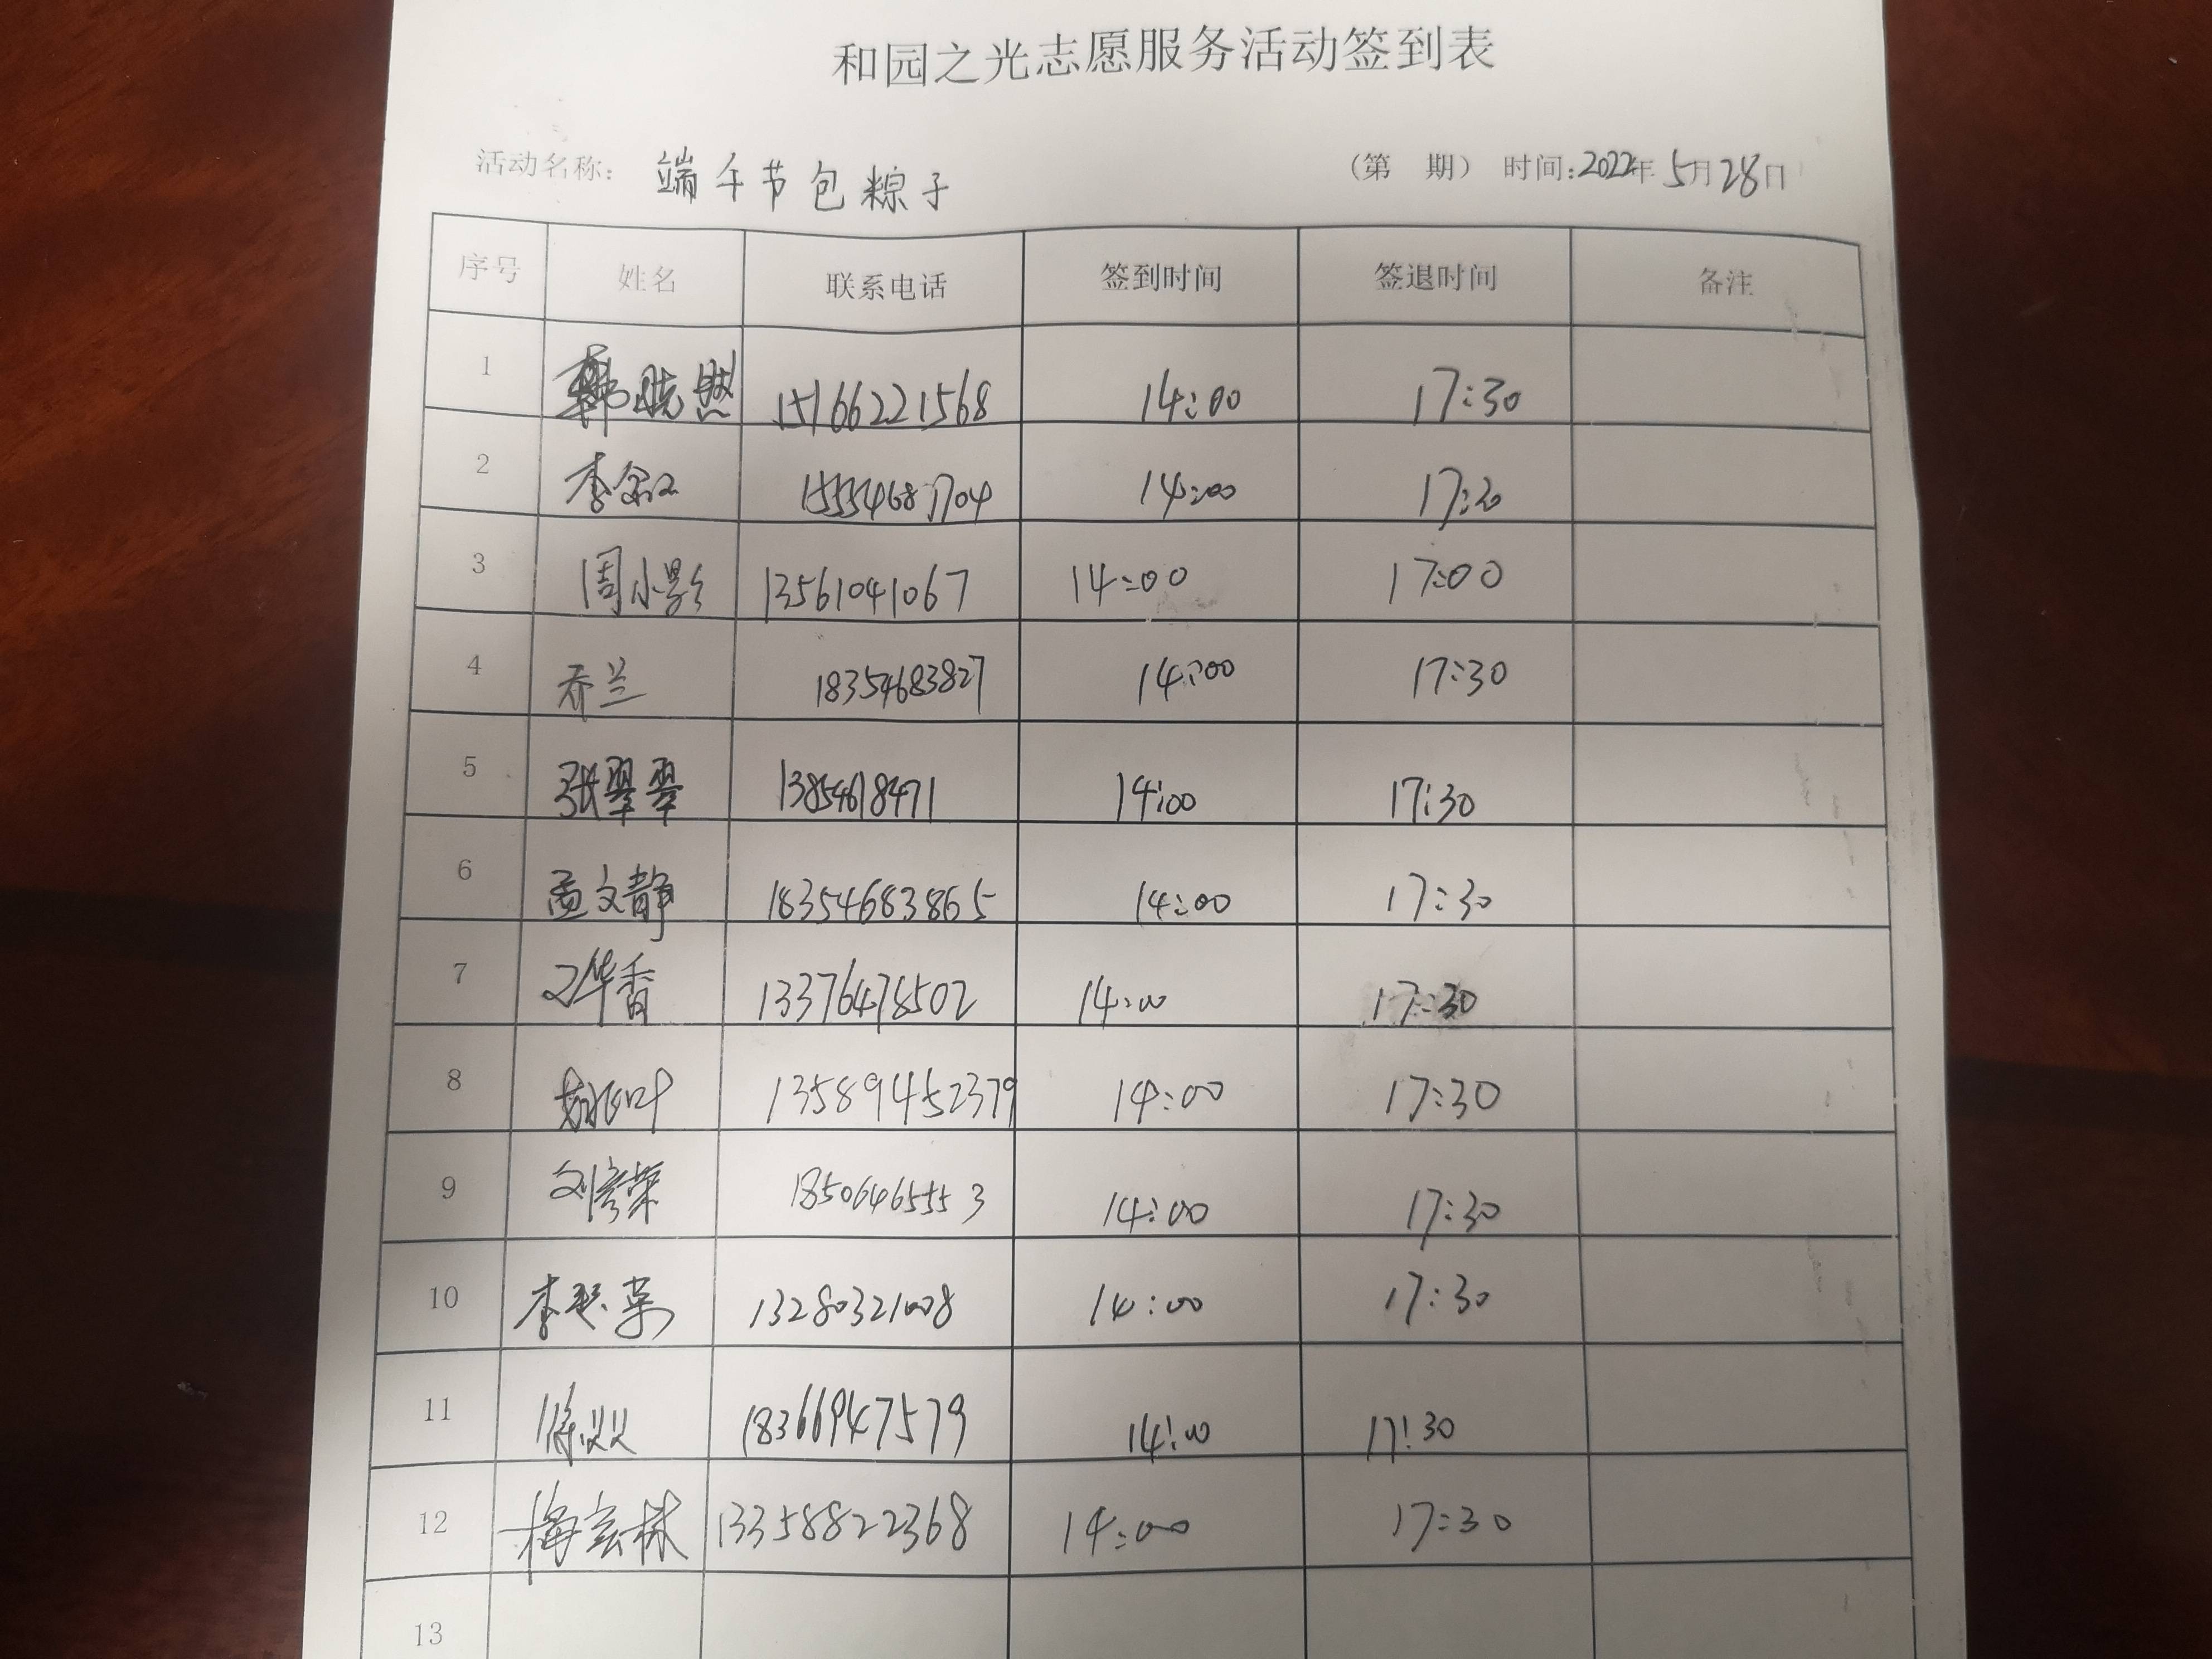 和园之光志愿服务活动签到表
活动名称: 端午节包粽子 (第 期) 时间:2022年5月28日
序号 姓名 联系电话 签到时间 签退时间 备注
1 韩晓燃 15166221568 14:00 17:30
2 李 14:00 17:30
3 周小影 13561041067 14:00 17:00
4 乔兰 18354683827 14:00 17:30
5 张翠翠 13854618471 14:00 17:30
6 孟文静 18354683865 14:00 17:30
7 华香 13376478502 14:00 17:30
8 13589452379 14:00 17:30
9 刘 荣 18506465553 14:00 17:30
10 李 菊 13280321008 14:00 17:30
11 徐双双 18366947579 14:00 17:30
12 梅 林 13358822368 14:00 17:30
13